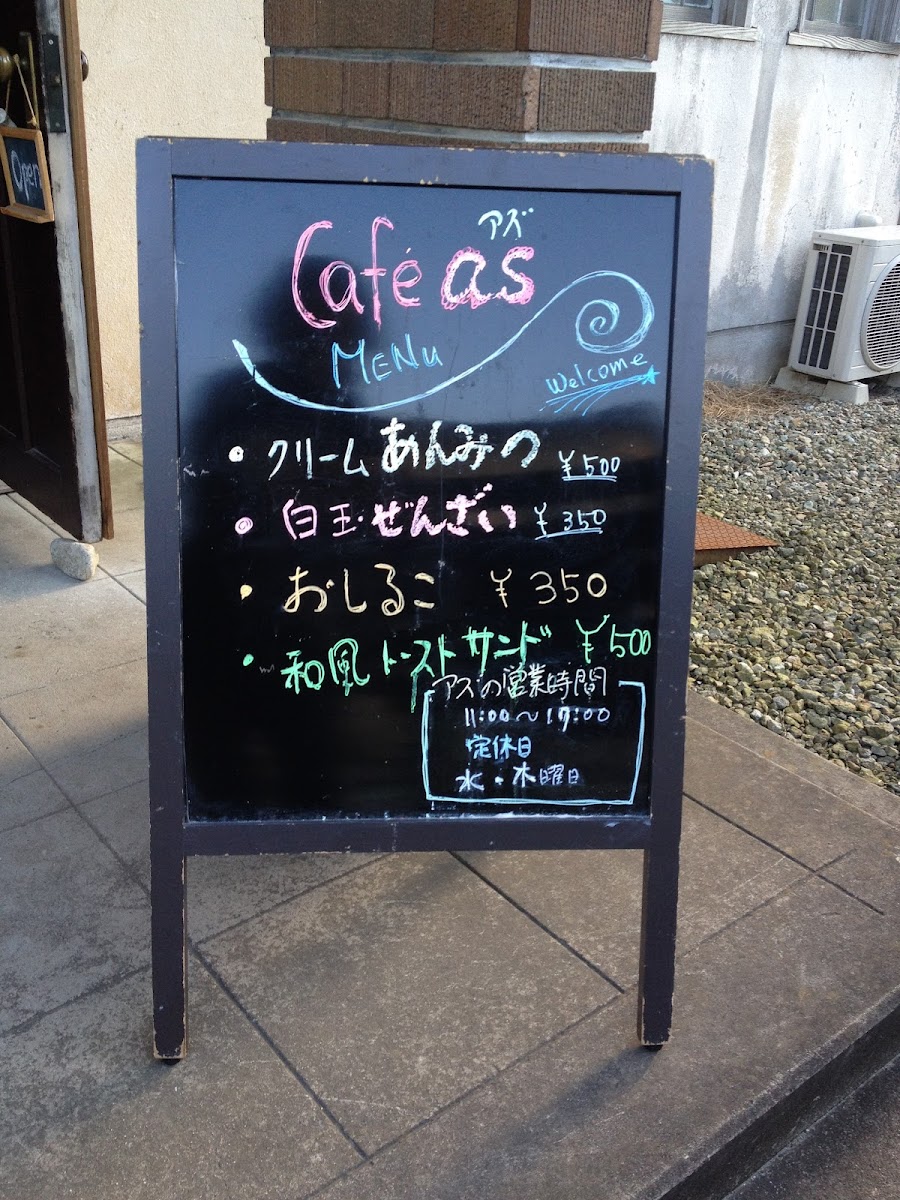 Open
アズ
Café as
MENU
Welcome
・クリームあんみつ ¥500
・白玉ぜんざい ¥350
・おしるこ ¥350
・和風トーストサンド ¥500
アズの営業時間
11:00〜17:00
定休日
水・木曜日